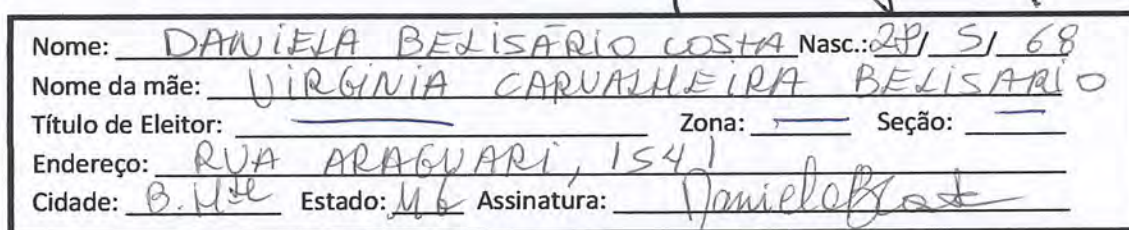 Nome: DANIELA BELISÁRIO COSTA Nasc.: 28/ 5/ 68
Nome da mãe: VIRGINIA CARVALHEIRA BELISARIO
Título de Eleitor: — Zona: — Seção:
Endereço: RUA ARAGUARI, 1541
Cidade: B. Hte Estado: MG Assinatura: Daniela BCosta